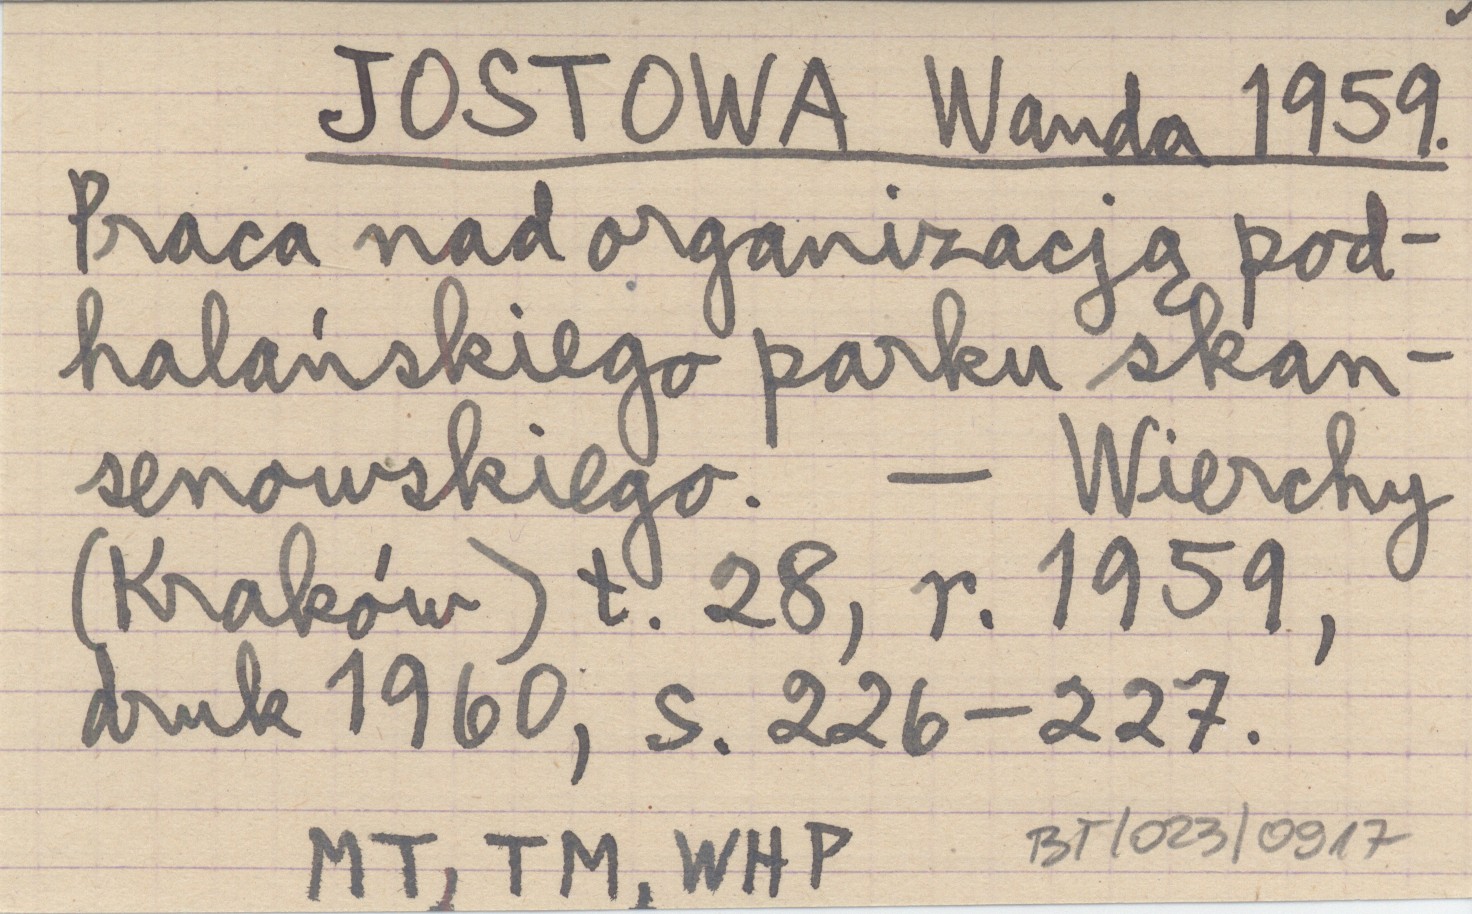 JOSTOWA Wanda 1959.
Praca nad organizacją pod-
halańskiego parku skan-
senowskiego. — Wierchy
(Kraków) t. 28, r. 1959,
druk 1960, s. 226–227.
MT, TM, WHP
BT/023/0917